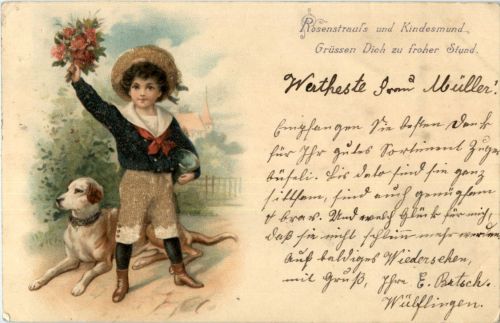 Rosenstrauß und Kindesmund
Grüssen Dich zu froher Stund.
Wertheste Frau Müller.
Empfangen Sie besten Dank
für Ihr gutes Sortiment Zuger
büseli. Bis dato sind sie ganz
sittsam, sind auch genügsam
& brav. Und welch Glück für mich,
daß sie nicht schlein mehr werden.
Auf baldiges Wiedersehen,
mit Gruß, Ihre E. Bütsch.
Wülflingen.